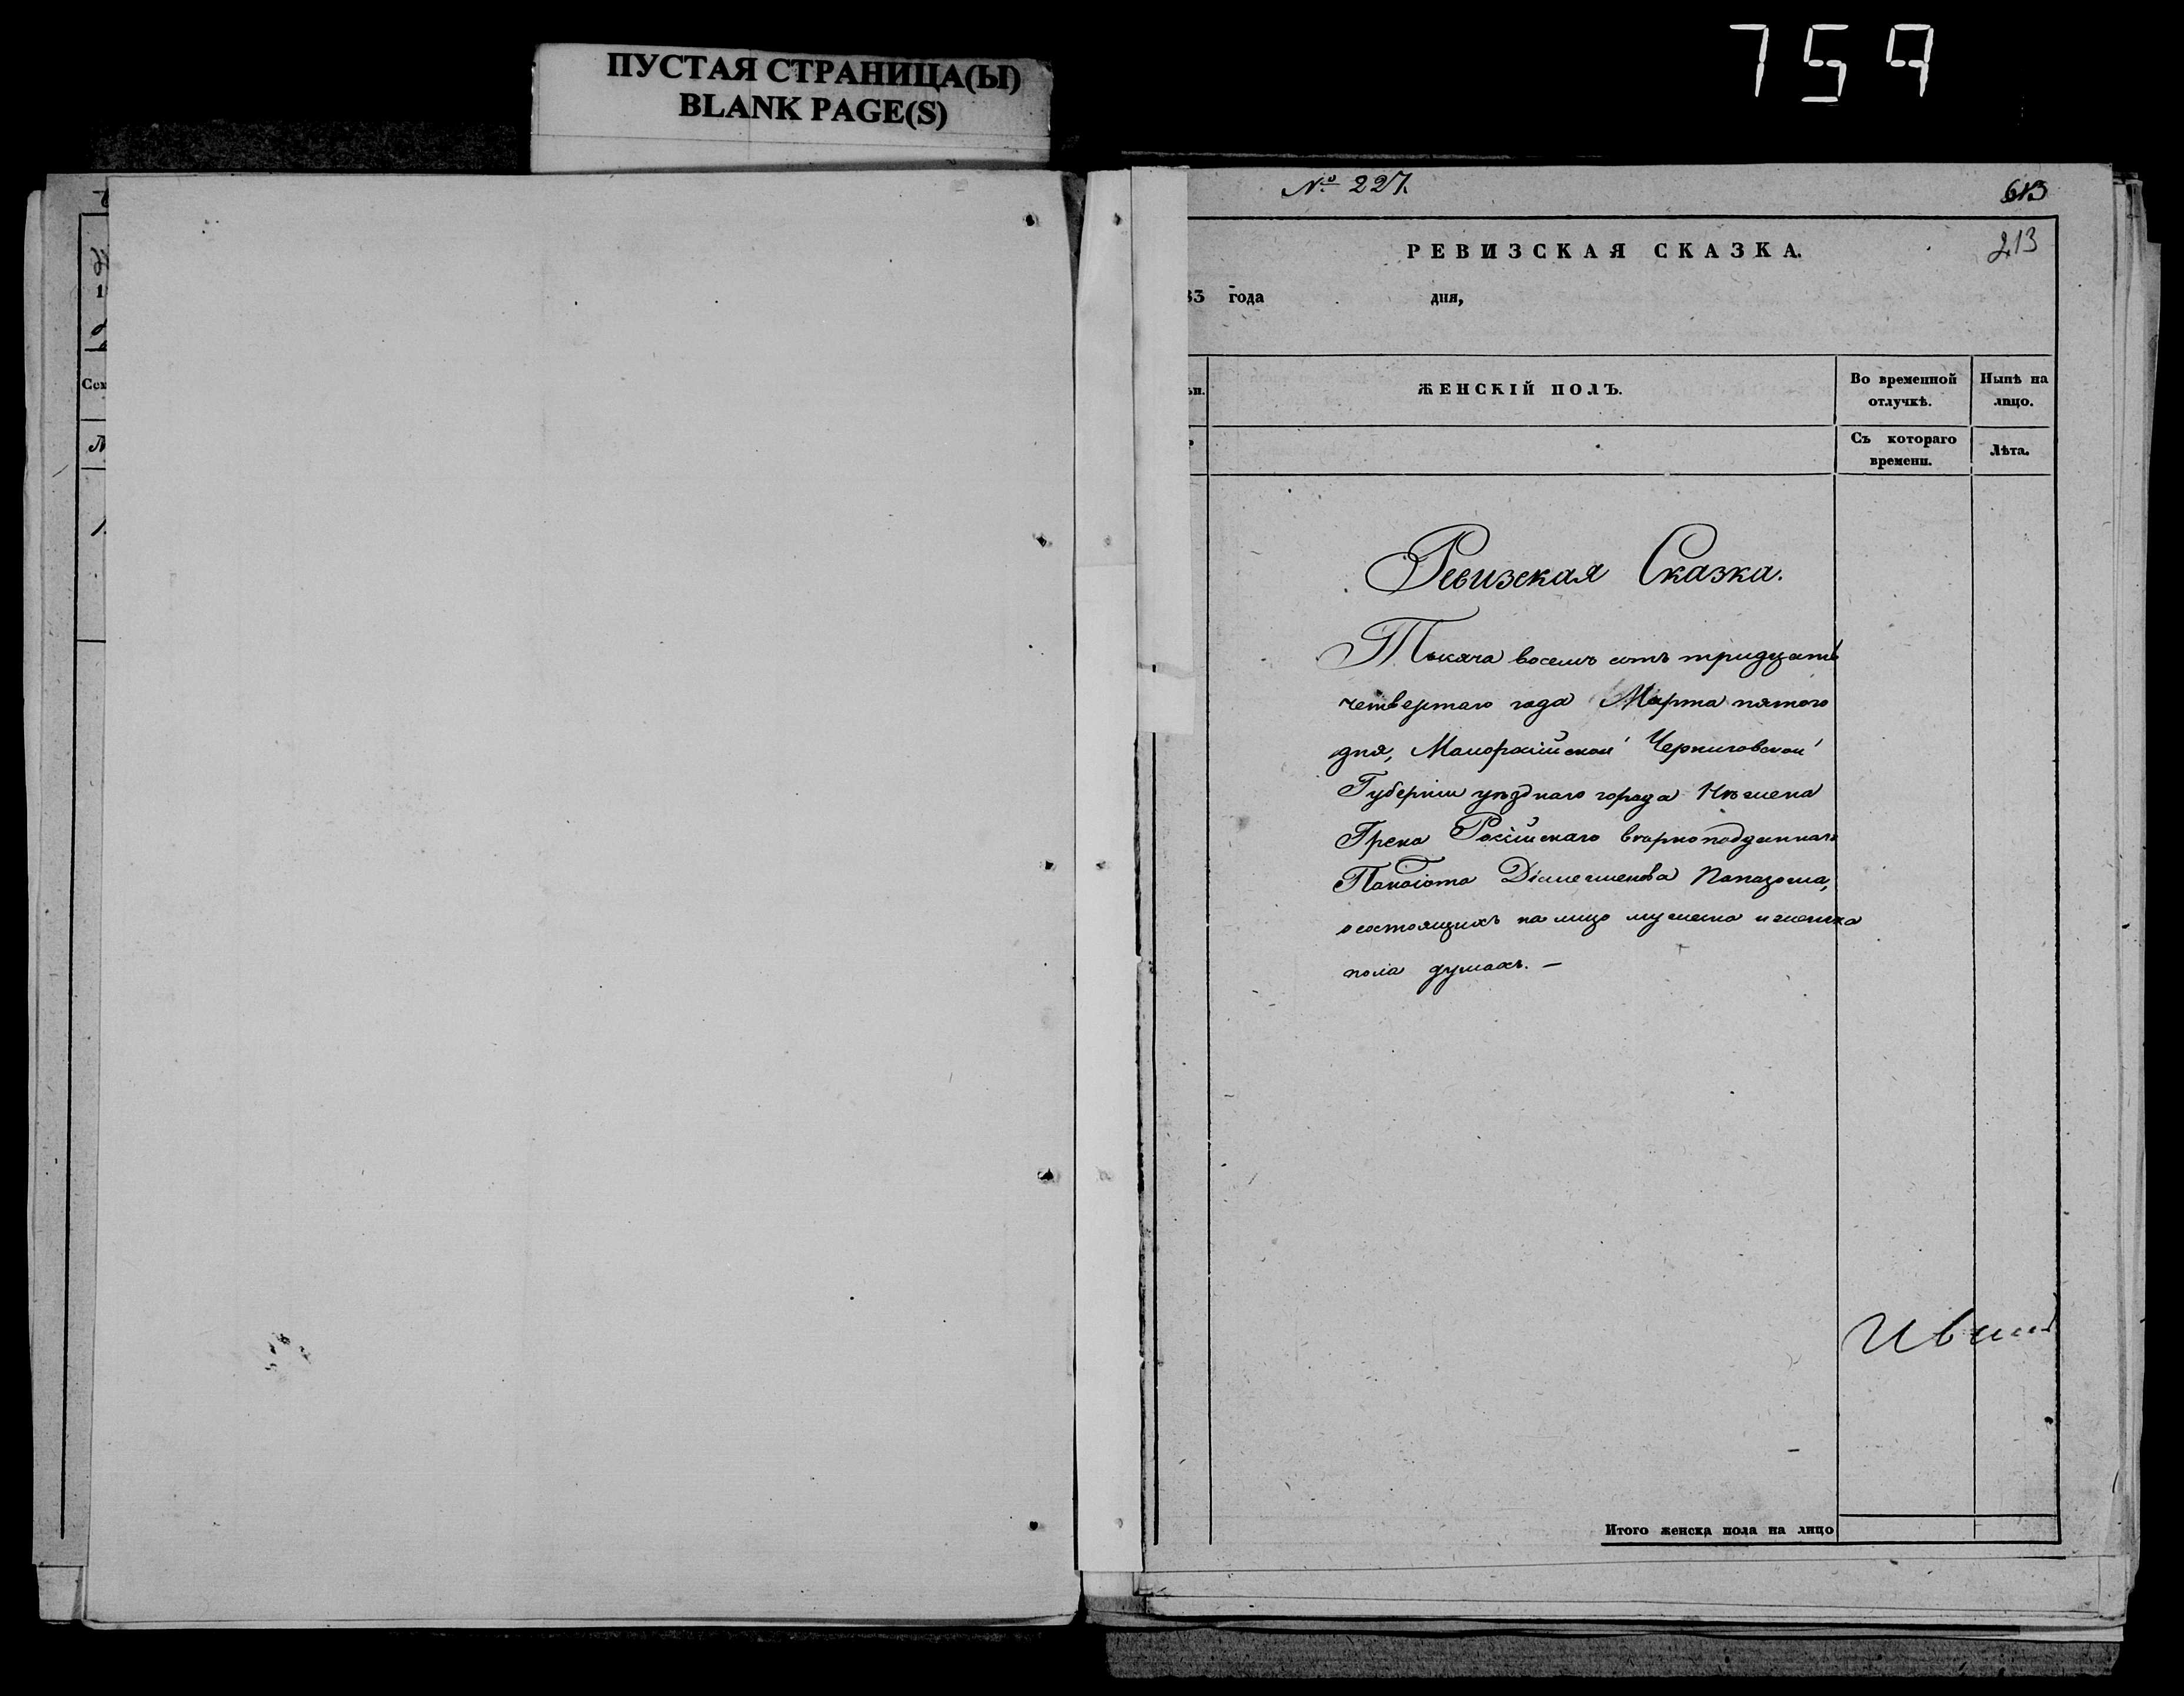 ПУСТАЯ СТРАНИЦА(Ы)
BLANK PAGE(S)
759
№ 227.
613
213
РЕВИЗСКАЯ СКАЗКА.
33 года дня,
ЖЕНСКІЙ ПОЛЪ.
Во временной
отлучкѣ.
Нынѣ на
лицо.
Съ котораго
времени.
Лѣта.
Сем
Ревизская Сказка.
Тысяча восемь сотъ тридцать
четвертаго года Марта пятого
дня, Малороссійской Черниговской
Губерніи уѣзднаго города Нѣжена
Грека Россійскаго вѣрноподданнаго
Панаіота
о состоящихъ на лицо мужеска и женска
пола душахъ. —
Итого женска пола на лицо